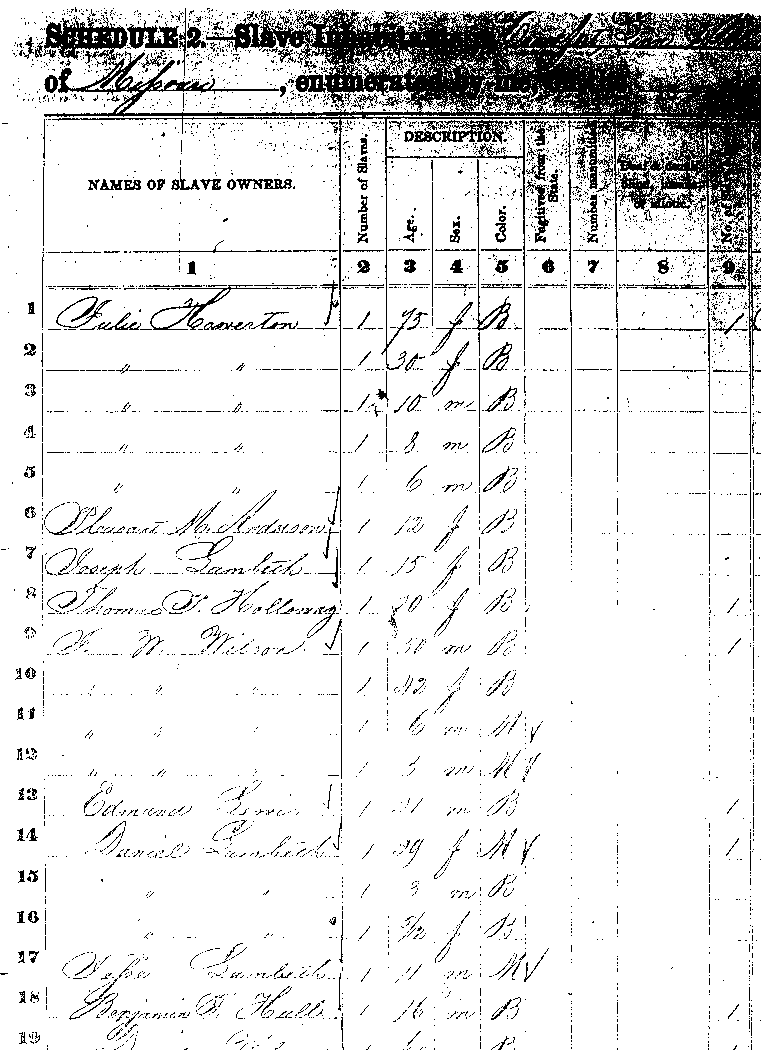 SCHEDULE 2.—Slave Inhabitants
of Missouri, enumerated by me,
NAMES OF SLAVE OWNERS. Number of Slaves. DESCRIPTION. Age. Sex. Color. Fugitives from the State. Number manumitted. No. of
1 2 3 4 5 6 7 8 9
1 Julie Howerton 1 75 f B 1
2 " " 1 30 f B
3 " " 1 10 m B
4 " " 1 8 m B
5 " " 1 6 m B
6 Pleasant M. Anderson 1 12 f B
7 Joseph Lambeth 1 15 f B
8 Thomas F. Holloway 1 20 f B 1
9 W. Wilson 1 50 m B 1
10 " " " 1 42 f B
11 " " " 1 6 m M
12 " " " 1 3 m M
13 Edmund Lewis 1 21 m B 1
14 Daniel Lambeth 1 29 f M 1
15 " " 1 3 m B
16 " " 1 f B
17 Lambeth 1 11 m M
18 Benjamin F. Hulls 1 16 m B 1
19